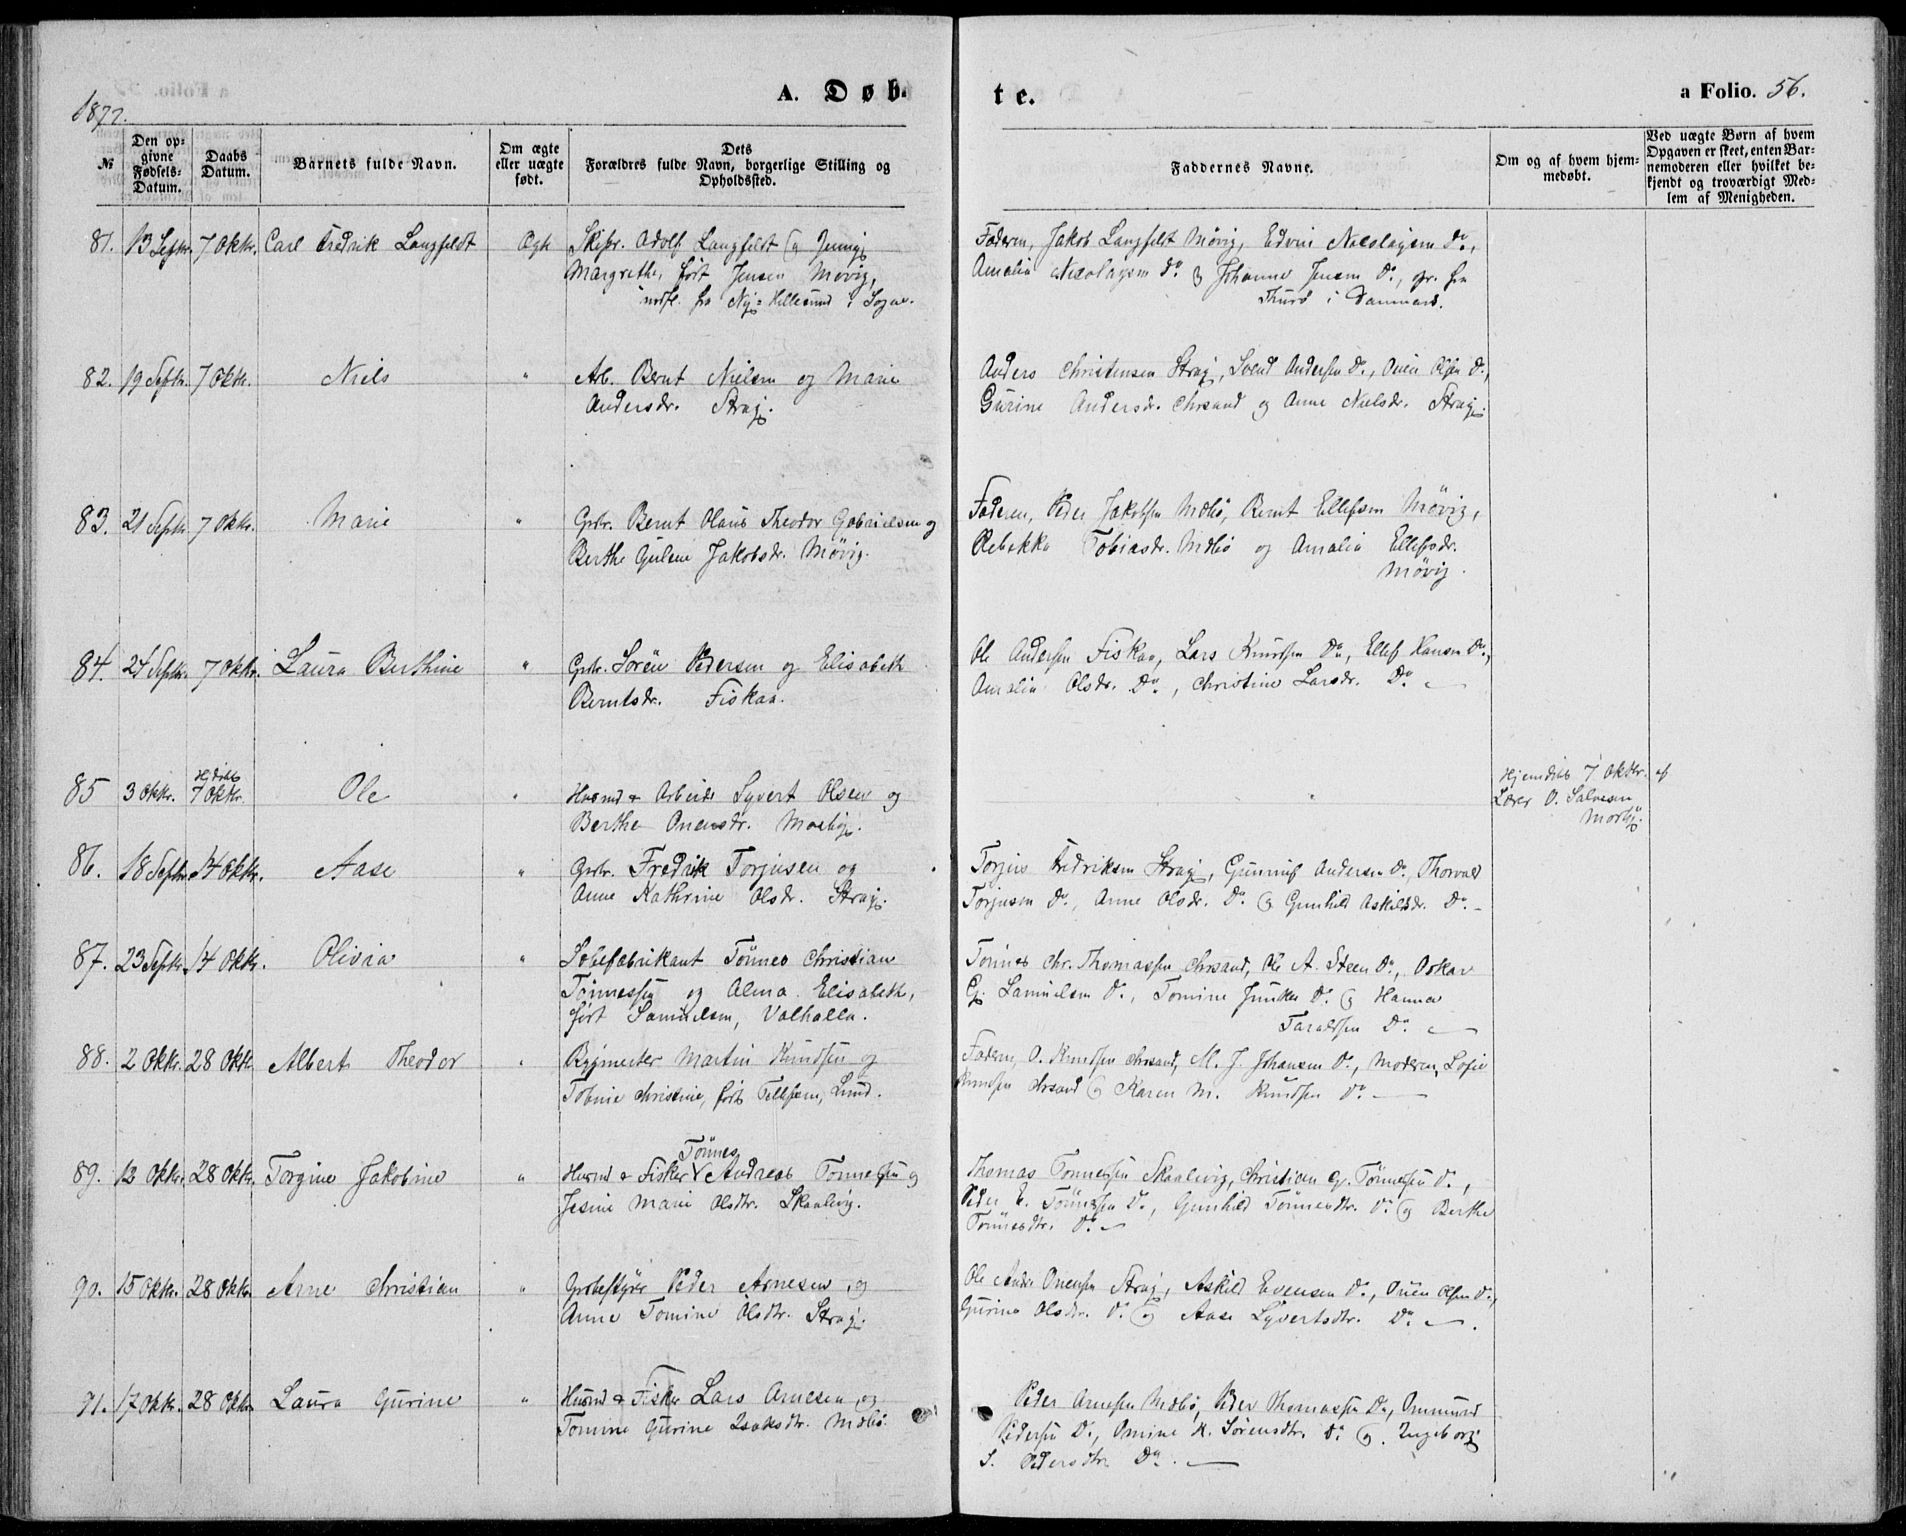 1877.
A. Døb-
te.
a Folio. 56.
№
Den op-
givne
Fødsels-
Datum.
Daabs
Datum.
Barnets fulde Navn.
Om ægte
eller uægte
født.
Dets
Forældres fulde Navn, borgerlige Stilling og
Opholdssted.
Faddernes Navne.
Om og af hvem hjem-
medøbt.
Ved uægte Børn af hvem
Opgaven er skeet, enten Bar-
nemoderen eller hvilket be-
kjendt og troværdigt Med-
lem af Menigheden.
81. 13 Septr. 7 Oktr. Carl Fredrik Langfeldt Ægte Skipr. Adolf Langfeldt og Jenny
Margrethe, født Jensen Møvig,
indfl. fra Ny-Hellesund i Sogne.
Faderen, Jakob Langfeldt Møvig, Edvin Nicolaysen Do.,
Amalia Nicolaysen Do. og Johanne Jensen Do., opr. fra
Thurø i Danmark.
82. 19 Septr. 7 Oktr. Niels " Arb. Bernt Nielsen og Marie
Andersdr. Strag.
Anders Christensen Strag, Svend Andersen Do., Ouen Olsen Do.,
Gurine Andersdr. Chrsand og Anne Nielsdr. Strag.
83. 21 Septr. 7 Oktr. Marie " Grbr. Bernt Olaus Theodor Gabrielsen og
Berthe Gulene Jakobsdr. Møvig.
Faderen, Peder Jakobsen Mebø, Bernt Ellefsen Møvig,
Rebekka Tobiasdr. Mebø og Amalia Ellefsdr.
Møvig.
84. 24 Septr. 7 Oktr. Laura Berthine " Grbr. Søren Pedersen og Elisabeth
Berntsdr. Fiskaa.
Ole Andersen Fiskaa, Lars Knudsen Do., Ellef Hansen Do.,
Amalia Olsdr. Do., Christine Larsdr. Do.
85 3 Oktr. Hjdøbt
7 Oktr. Ole " Husmd & Arbeider Syvert Olsen og
Berthe Onensdr. Mosby.
Hjemdøbt 7 Oktbr. af
Lærer O. Salvesen
Mosby.
86. 18 Septr. 14 Oktr. Aase " Grbr. Fredrik Torjusen og
Anne Kathrine Olsdr. Strag.
Torjus Fredriksen Strag, Gunnuf Andersen Do., Thorvald
Torjusen Do., Anne Olsdr. Do. og Gunhild Askildsdr. Do.
87. 23 Septr. 14 Oktr. Olivia " Sæbefabrikant Tønnes Christian
Tønnessen og Alma Elisabeth,
født Samuelsen, Valhalla.
Tønnes Chr. Thomassen Chrsand, Ole A. Steen Do., Oskar
Gj. Samuelsen Do., Tomine Junker Do. og Hanna
Taraldsen Do.
88. 2 Oktr. 28 Oktr. Albert Theodor " Bygmester Martin Knudsen og
Tobine Christine, født Tellefsen, Lund.
Faderen, O. Knudsen Chrsand, M. J. Johansen Do., Moderen, Sofie
Knudsen Chrsand og Karen M. Knudsen Do.
89. 12 Oktr. 28 Oktr. Torgine Jakobine " Tønnes
Husmd & Fisker Andreas Tønnessen og
Jesine Marie Olsdtr. Skaalevig.
Thomas Tønnessen Skaalevig, Christian G. Tønnessen Do.,
Peder E. Tønnessen Do., Gunhild Tønnesdtr. Do. og Berthe
Tønnesdtr. Do.
90. 15 Oktr. 28 Oktr. Arne Christian " Grbestyrer Peder Arnesen og
Anne Tomine Olsdtr. Strag.
Ole Andr. Onensen Strag, Askild Evensen Do., Ouen Olsen Do.,
Gurine Olsdtr. Do. og Aase Syvertsdtr. Do.
91. 17 Oktr. 28 Oktr. Laura Gurine " Husmd & Fisker Lars Arnesen og
Tomine Gurine Isaksdtr. Mebø.
Peder Arnesen Mebø, Peder Thomassen Do., Ommund
Pedersen Do., Omine K. Sørensdtr. Do. og Ingeborg
S. Pedersdtr. Do.